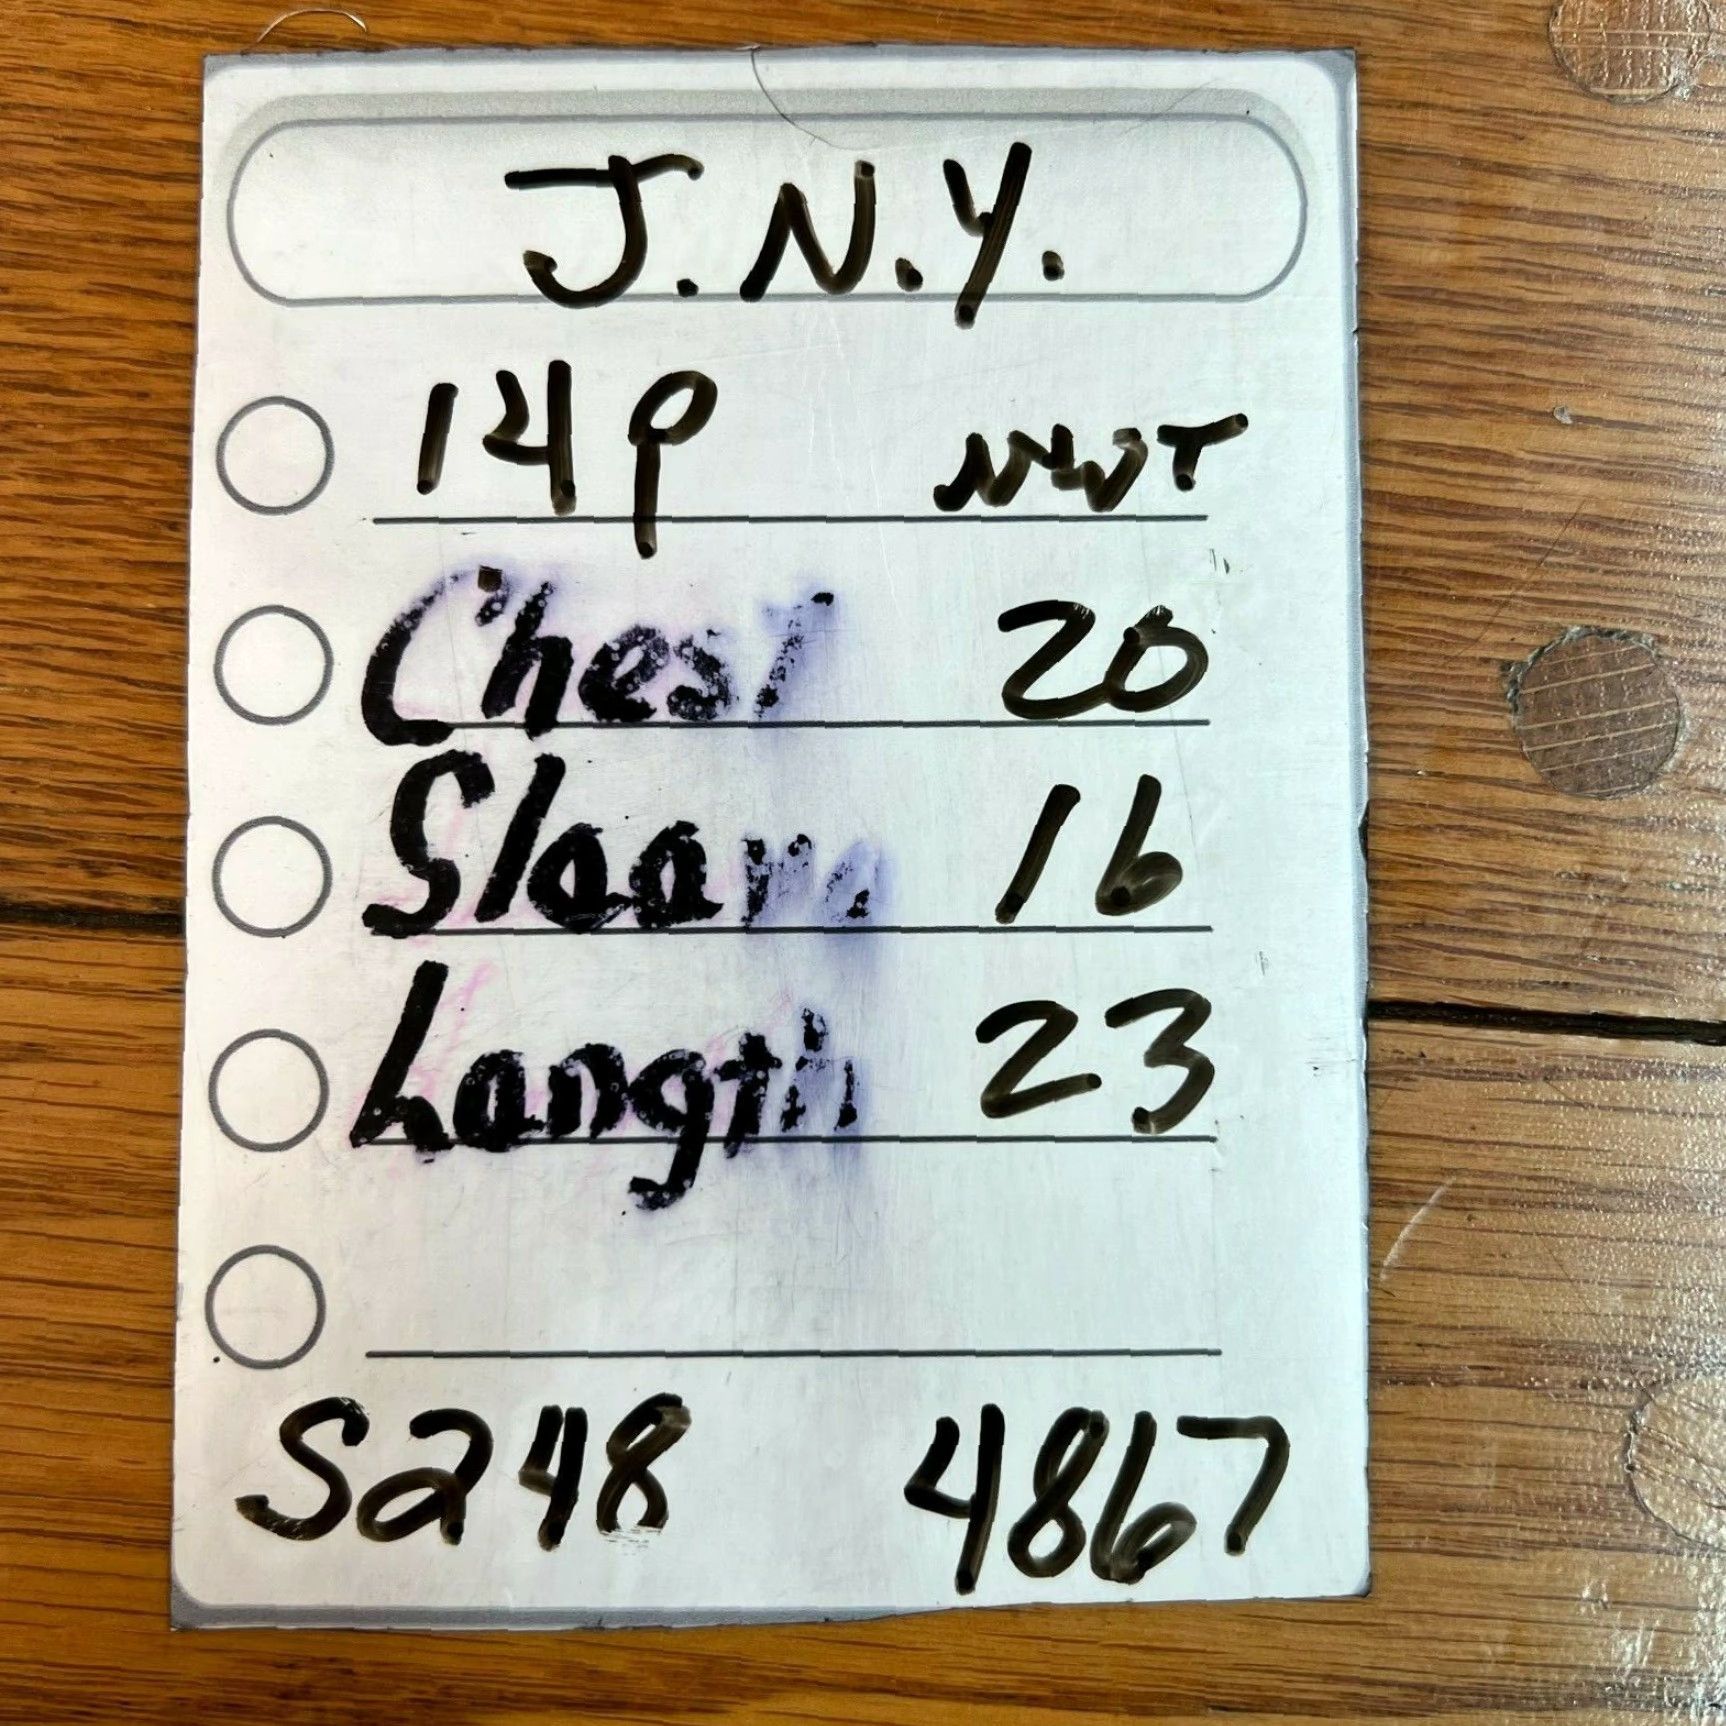 J.N.Y.
14P NWT
Chest 20
Sleeve 16
Length 23
S248 4867